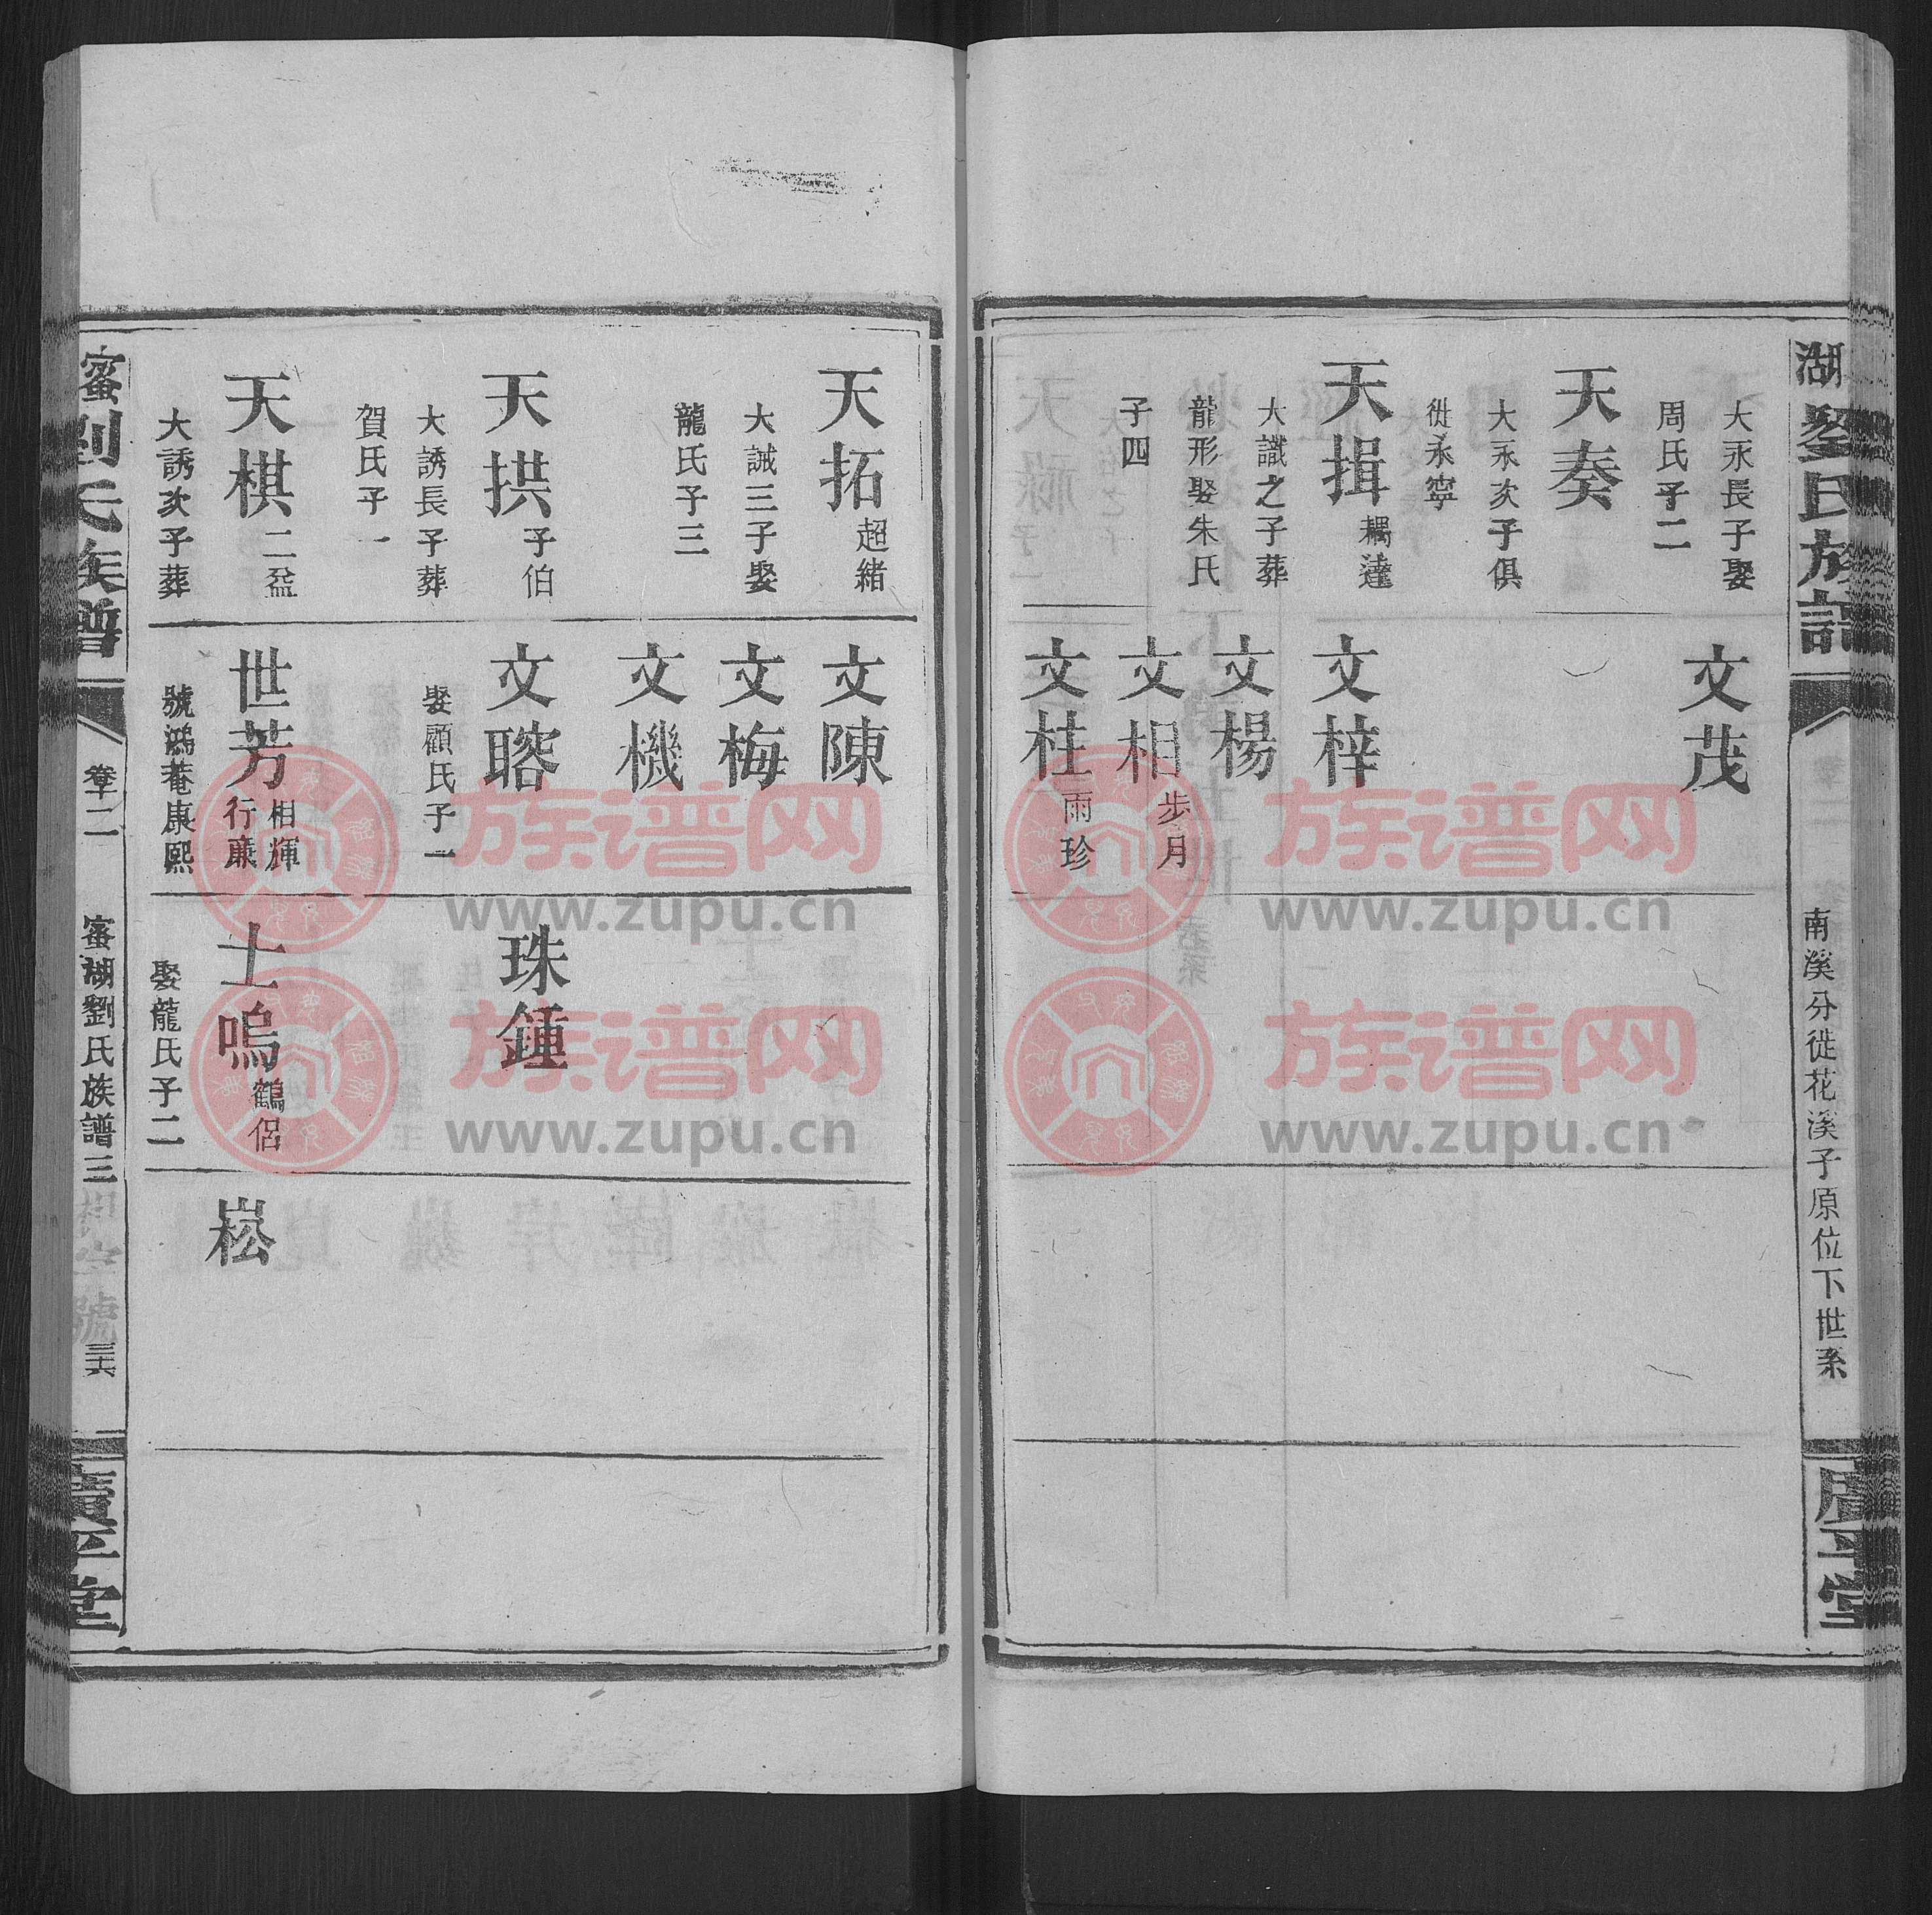 湖劉氏族譜
南溪分徙花溪子原位下世系
廣平堂
大永長子娶
周氏子二
天奏
大永次子俱
徙永寧
天揖
耦達
大讖之子葬
龍形娶朱氏
子四
文茂
文梓
文楊
文相
步月
文柱
雨珍
天拓
超緒
大誠三子娶
龍氏子三
天拱
子伯
大誘長子葬
賀氏子一
天棋
二益
大誘次子葬
文陳
文梅
文機
文瑢
娶顧氏子一
世芳
相輝
行廉
號鴻菴康熙
珠鍾
士嗚
鶴侶
娶龍氏子二
崧
蜜劉氏族譜
卷十二
蜜湖劉氏族譜三
相字號
三十六
廣平堂
族谱网
www.zupu.cn
族谱网
www.zupu.cn
族谱网
www.zupu.cn
族谱网
www.zupu.cn